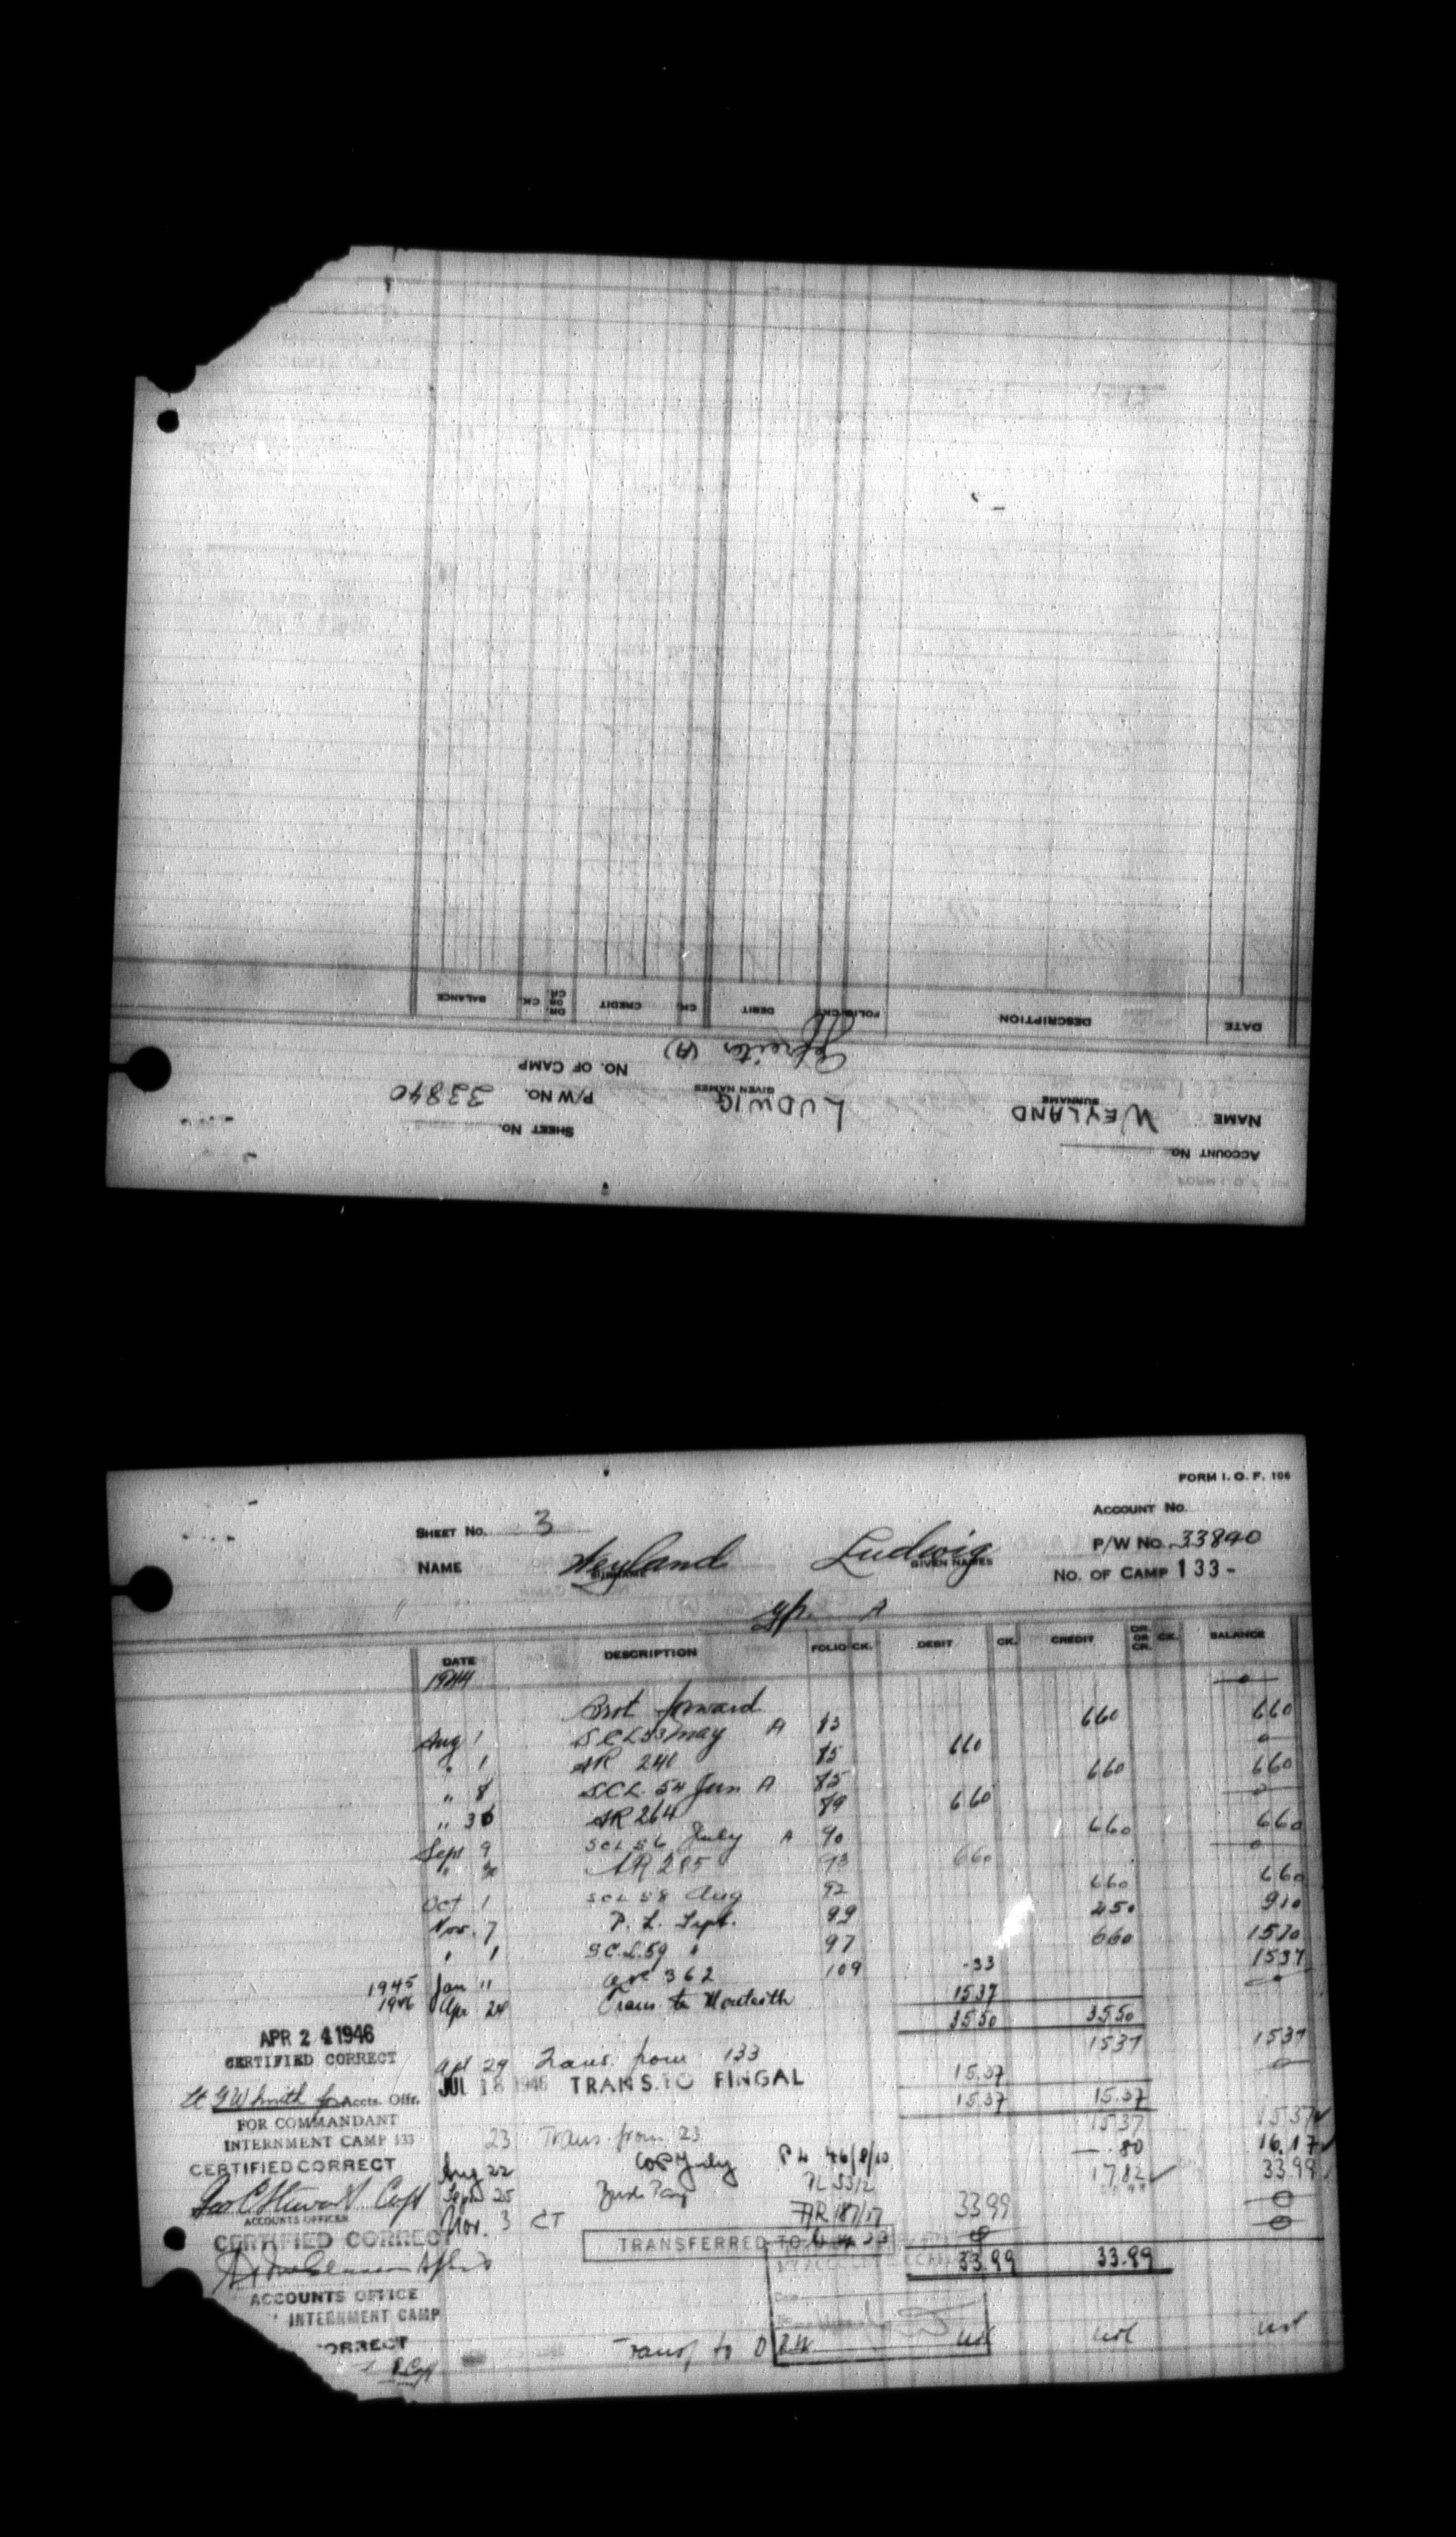 FORM I. O. F. 106
ACCOUNT No.
SHEET No.
NAME WEYLAND LUDWIG P/W No. 33840
SURNAME GIVEN NAMES
Gefreiter (A) NO. OF CAMP
DATE DESCRIPTION FOLIO CK. DEBIT CK. CREDIT DR. OR CR. CK. BALANCE
FORM I. O. F. 106
SHEET No. 3 ACCOUNT No.
NAME Weyland Ludwig P/W No. 33840
SURNAME GIVEN NAMES NO. OF CAMP 133-
A
DATE DESCRIPTION FOLIO CK. DEBIT CK. CREDIT DR. OR CR. CK. BALANCE
1944
Brot forward 0
Aug 1 SCL 53 May A 83 660 660
" 1 AR 241 85 660 0
" 8 SCL 54 Jun A 85 660 660
" 30 AR 264 89 660 0
Sept 9 SCL 56 July A 90 660 660
" 30 AR 285 93 660 0
Oct 1 SCL 58 Aug 92 660 660
Nov. 7 P. L. Sept. 99 250 910
" 1 S.C.L. 59 " 97 660 1570
1945 Jan 11 362 109 -33 1537
1946 Apr 24 Trans to Monteith 1537 0
3550 3550
APR 24 1946
CERTIFIED CORRECT
Apl 29 Trans. from 133 1537 1537
JUL 18 1946 TRANS. TO FINGAL 15.37 0
15.37 15.37
Lt G W Smith for Accts. Offr.
FOR COMMANDANT
INTERNMENT CAMP 133
23 Trans. from 23 1537 1537
CERTIFIED CORRECT
Aug 22 July P L 46/8/10 .80 16.17
Sept 25 PL 53/2 17.82 33.99
Geo C Stewart Capt
ACCOUNTS OFFICER
Nov. 3 CT AR 187/17 33.99 0
CERTIFIED CORRECT
TRANSFERRED TO 0
33.99 33.99
ACCOUNTS OFFICE
INTERNMENT CAMP
CORRECT
Transf to nil nil nil
Capt